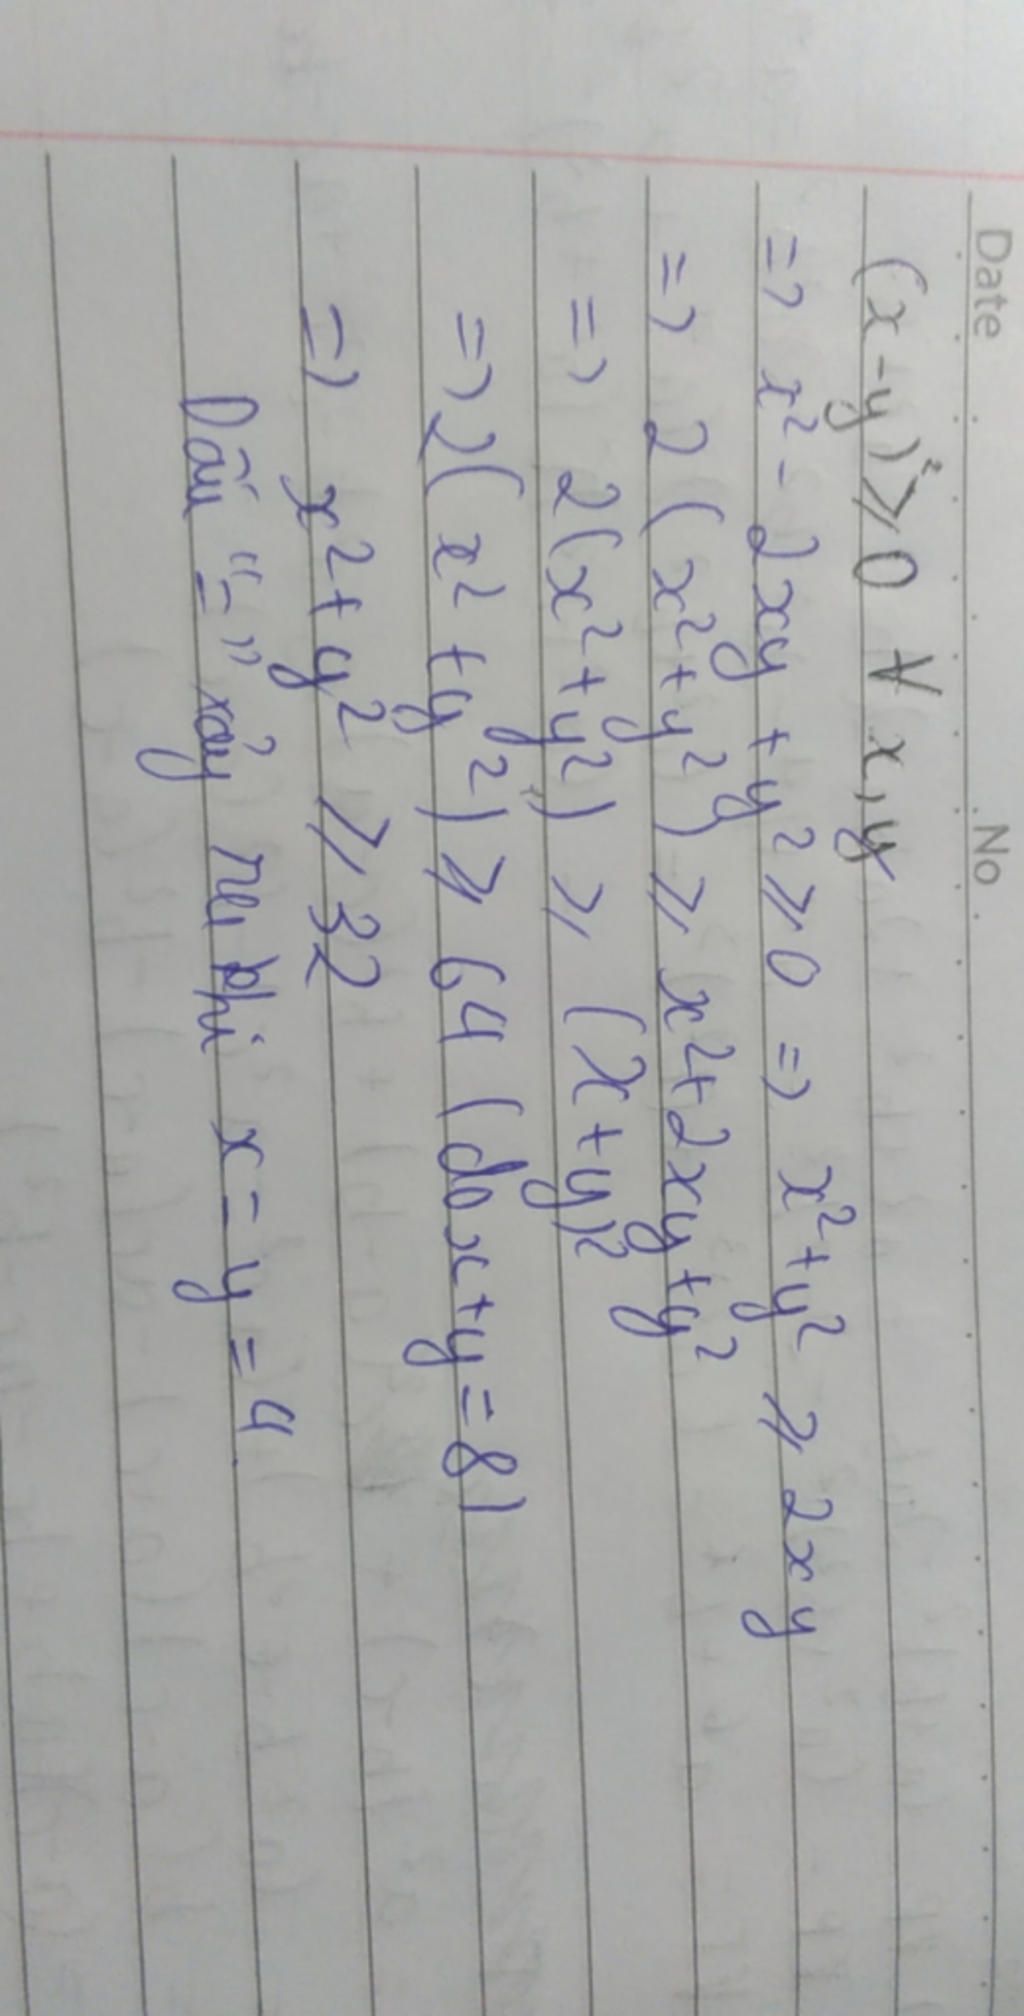 Date No
(x-y)² ≥ 0 ∀ x,y
=> x² - 2xy + y² ≥ 0 => x² + y² ≥ 2xy
=> 2(x² + y²) ≥ x² + 2xy + y²
=> 2(x² + y²) ≥ (x + y)²
=> 2(x² + y²) ≥ 64 (do x + y = 8)
=> x² + y² ≥ 32
Dấu "=" xảy ra khi x = y = 4